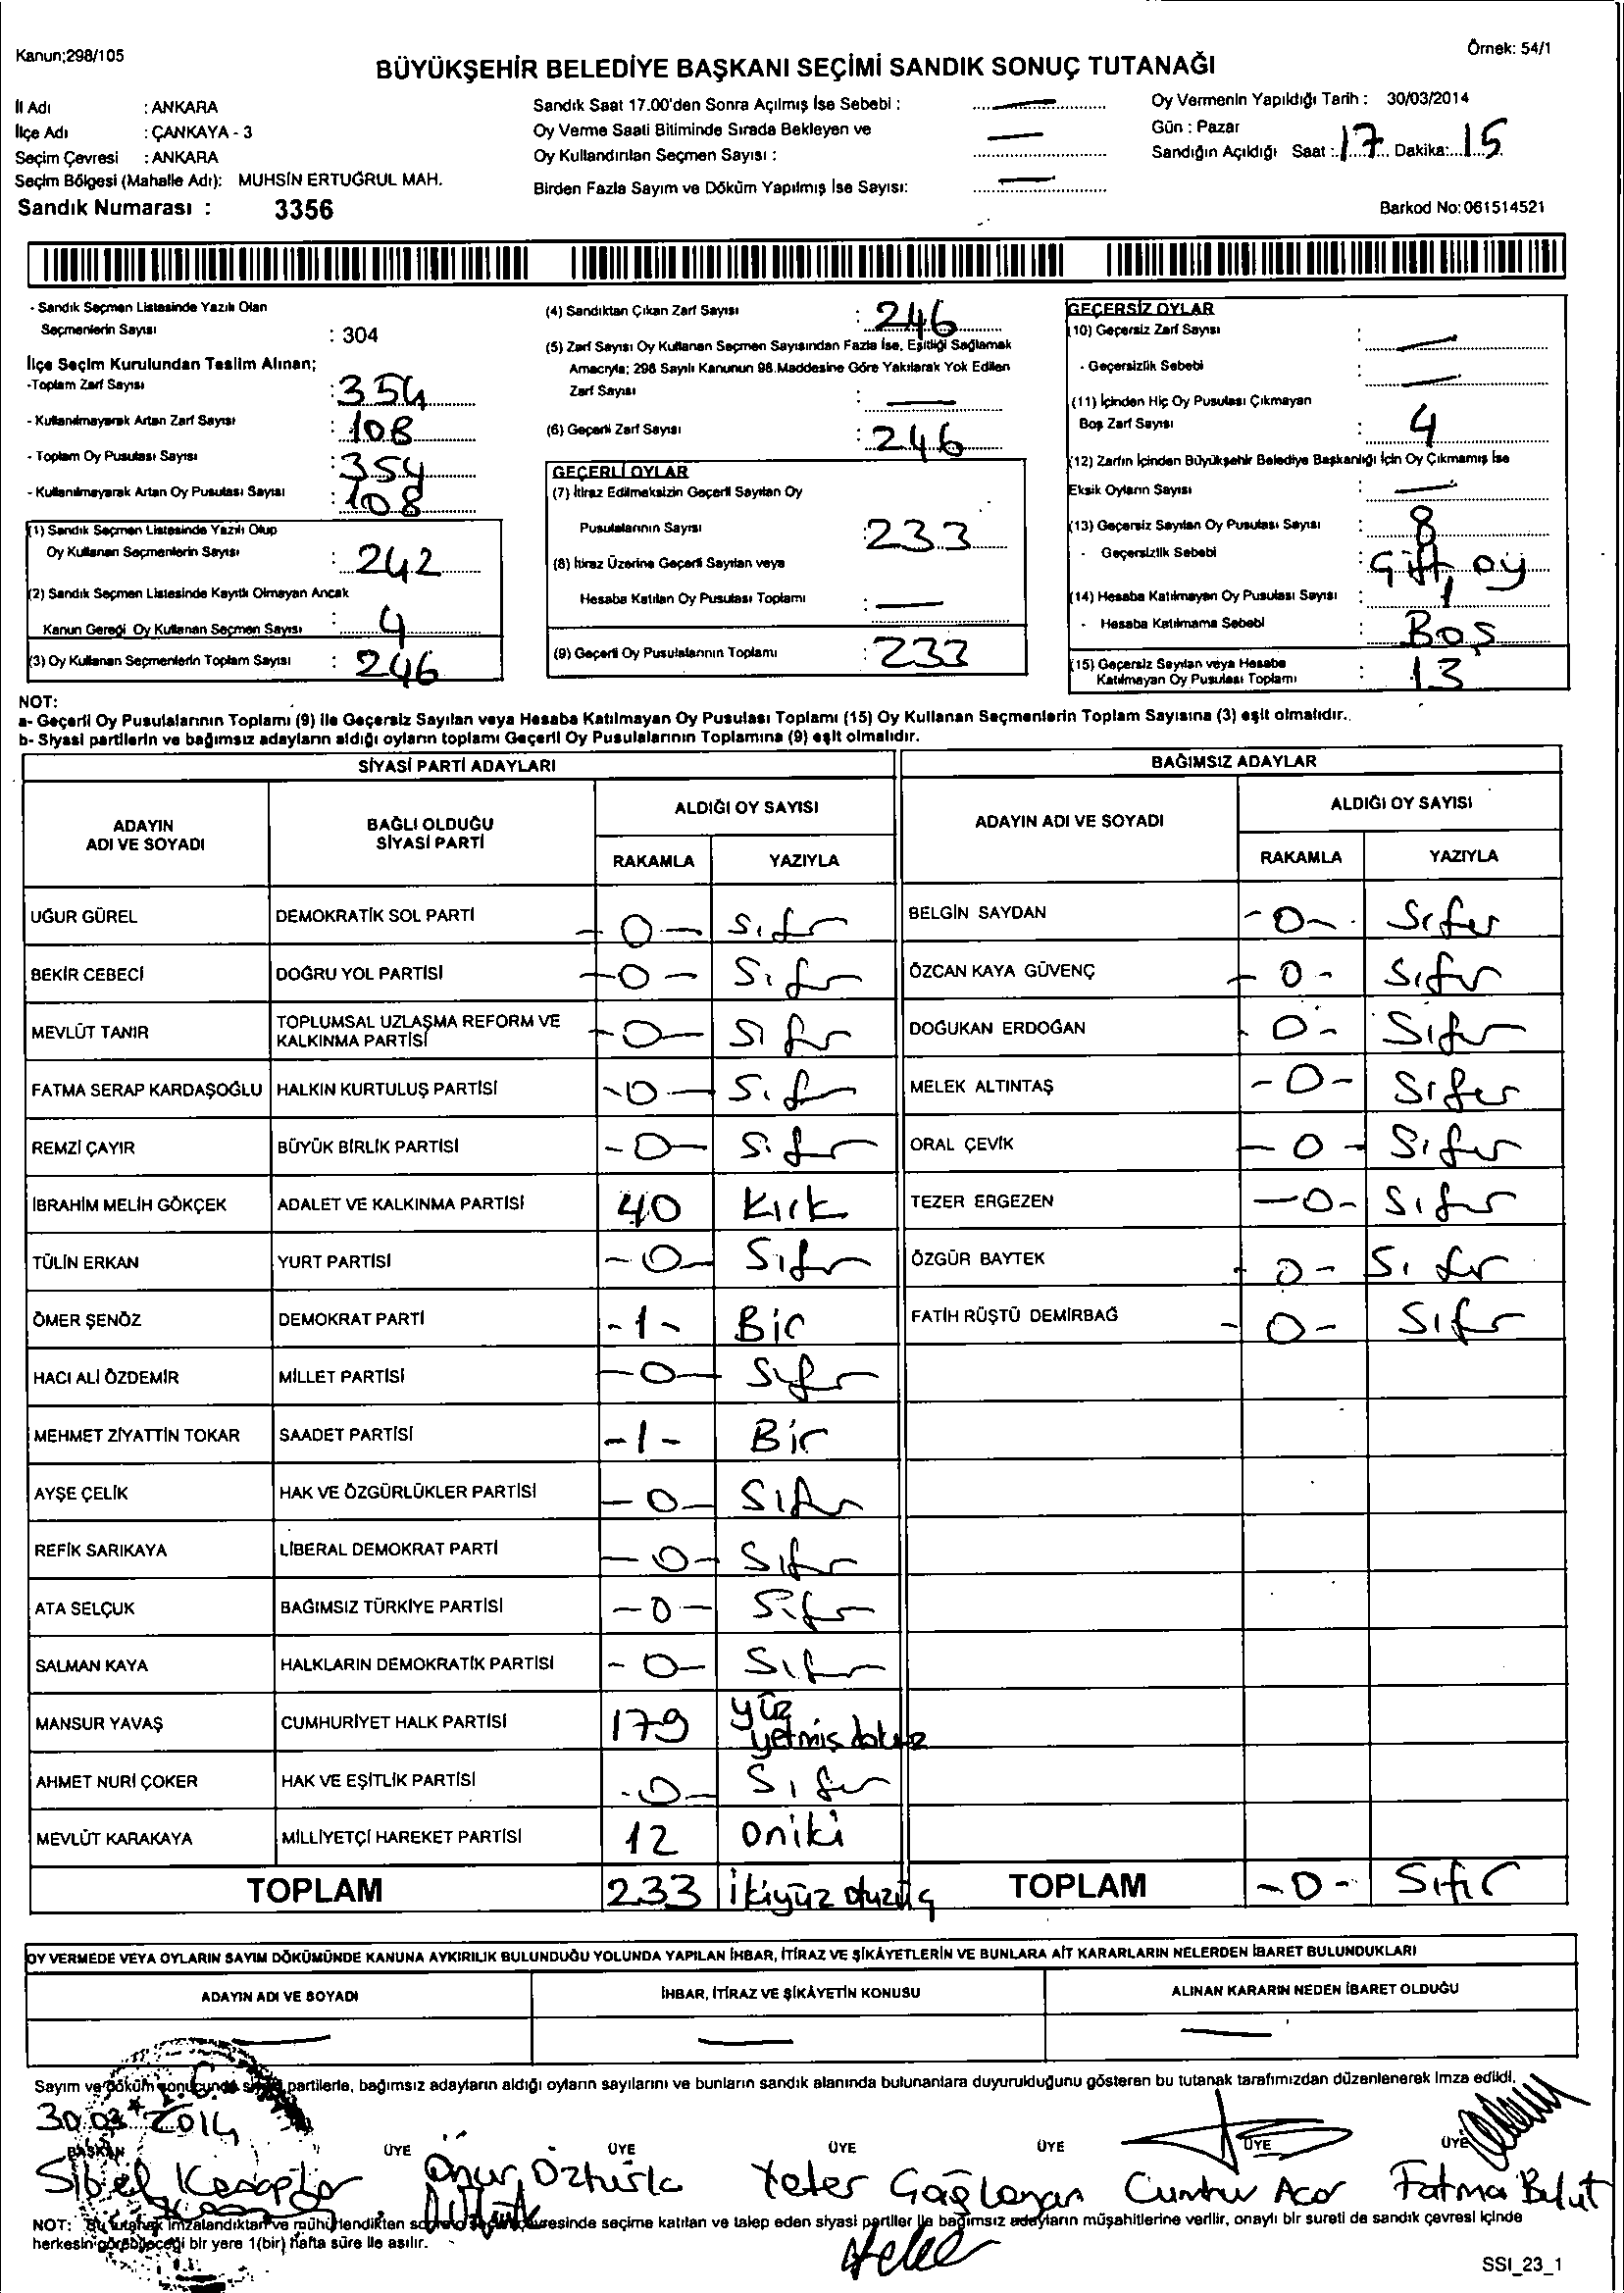 Kanun;298/105
Örnek: 54/1
BÜYÜKŞEHİR BELEDİYE BAŞKANI SEÇİMİ SANDIK SONUÇ TUTANAĞI
İl Adı : ANKARA
İlçe Adı : ÇANKAYA - 3
Seçim Çevresi : ANKARA
Seçim Bölgesi (Mahalle Adı): MUHSİN ERTUĞRUL MAH.
Sandık Numarası : 3356
Sandık Saat 17.00'den Sonra Açılmış İse Sebebi : —
Oy Verme Saati Bitiminde Sırada Bekleyen ve
Oy Kullandırılan Seçmen Sayısı : —
Birden Fazla Sayım ve Döküm Yapılmış İse Sayısı: —
Oy Vermenin Yapıldığı Tarih : 30/03/2014
Gün : Pazar
Sandığın Açıldığı Saat : 17 Dakika: 15
Barkod No: 061514521
- Sandık Seçmen Listesinde Yazılı Olan
Seçmenlerin Sayısı : 304
İlçe Seçim Kurulundan Teslim Alınan;
-Toplam Zarf Sayısı : 354
- Kullanılmayarak Artan Zarf Sayısı : 108
- Toplam Oy Pusulası Sayısı : 354
- Kullanılmayarak Artan Oy Pusulası Sayısı : 108
(1) Sandık Seçmen Listesinde Yazılı Olup
Oy Kullanan Seçmenlerin Sayısı : 242
(2) Sandık Seçmen Listesinde Kayıtlı Olmayan Ancak
Kanun Gereği Oy Kullanan Seçmen Sayısı : 4
(3) Oy Kullanan Seçmenlerin Toplam Sayısı : 246
(4) Sandıktan Çıkan Zarf Sayısı : 246
(5) Zarf Sayısı Oy Kullanan Seçmen Sayısından Fazla İse, Eşitliği Sağlamak
Amacıyla; 298 Sayılı Kanunun 98.Maddesine Göre Yakılarak Yok Edilen
Zarf Sayısı : —
(6) Geçerli Zarf Sayısı : 246
GEÇERLİ OYLAR
(7) İtiraz Edilmeksizin Geçerli Sayılan Oy
Pusulalarının Sayısı : 233
(8) İtiraz Üzerine Geçerli Sayılan veya
Hesaba Katılan Oy Pusulası Toplamı : —
(9) Geçerli Oy Pusulalarının Toplamı : 233
GEÇERSİZ OYLAR
(10) Geçersiz Zarf Sayısı : —
- Geçersizlik Sebebi : —
(11) İçinden Hiç Oy Pusulası Çıkmayan
Boş Zarf Sayısı : 4
(12) Zarfın İçinden Büyükşehir Belediye Başkanlığı İçin Oy Çıkmamış İse
Eksik Oyların Sayısı : —
(13) Geçersiz Sayılan Oy Pusulası Sayısı : 8
- Geçersizlik Sebebi : Çift oy
(14) Hesaba Katılmayan Oy Pusulası Sayısı : 1
- Hesaba Katılmama Sebebi : Boş
(15) Geçersiz Sayılan veya Hesaba
Katılmayan Oy Pusulası Toplamı : 13
NOT:
a- Geçerli Oy Pusulalarının Toplamı (9) ile Geçersiz Sayılan veya Hesaba Katılmayan Oy Pusulası Toplamı (15) Oy Kullanan Seçmenlerin Toplam Sayısına (3) eşit olmalıdır.
b- Siyasi partilerin ve bağımsız adayların aldığı oyların toplamı Geçerli Oy Pusulalarının Toplamına (9) eşit olmalıdır.
SİYASİ PARTİ ADAYLARI
ADAYIN ADI VE SOYADI BAĞLI OLDUĞU SİYASİ PARTİ ALDIĞI OY SAYISI
RAKAMLA YAZIYLA
UĞUR GÜREL DEMOKRATİK SOL PARTİ -0- Sıfır
BEKİR CEBECİ DOĞRU YOL PARTİSİ -0- Sıfır
MEVLÜT TANIR TOPLUMSAL UZLAŞMA REFORM VE KALKINMA PARTİSİ -0- Sıfır
FATMA SERAP KARDAŞOĞLU HALKIN KURTULUŞ PARTİSİ -0- Sıfır
REMZİ ÇAYIR BÜYÜK BİRLİK PARTİSİ -0- Sıfır
İBRAHİM MELİH GÖKÇEK ADALET VE KALKINMA PARTİSİ 40 Kırk
TÜLİN ERKAN YURT PARTİSİ -0- Sıfır
ÖMER ŞENÖZ DEMOKRAT PARTİ -1- Bir
HACI ALİ ÖZDEMİR MİLLET PARTİSİ -0- Sıfır
MEHMET ZİYATTİN TOKAR SAADET PARTİSİ -1- Bir
AYŞE ÇELİK HAK VE ÖZGÜRLÜKLER PARTİSİ -0- Sıfır
REFİK SARIKAYA LİBERAL DEMOKRAT PARTİ -0- Sıfır
ATA SELÇUK BAĞIMSIZ TÜRKİYE PARTİSİ -0- Sıfır
SALMAN KAYA HALKLARIN DEMOKRATİK PARTİSİ -0- Sıfır
MANSUR YAVAŞ CUMHURİYET HALK PARTİSİ 179 yüz yetmiş dokuz
AHMET NURİ ÇOKER HAK VE EŞİTLİK PARTİSİ -0- Sıfır
MEVLÜT KARAKAYA MİLLİYETÇİ HAREKET PARTİSİ 12 Oniki
TOPLAM 233 ikiyüz otuzüç
BAĞIMSIZ ADAYLAR
ADAYIN ADI VE SOYADI ALDIĞI OY SAYISI
RAKAMLA YAZIYLA
BELGİN SAYDAN -0- Sıfır
ÖZCAN KAYA GÜVENÇ -0- Sıfır
DOĞUKAN ERDOĞAN -0- Sıfır
MELEK ALTINTAŞ -0- Sıfır
ORAL ÇEVİK -0- Sıfır
TEZER ERGEZEN -0- Sıfır
ÖZGÜR BAYTEK -0- Sıfır
FATİH RÜŞTÜ DEMİRBAĞ -0- Sıfır
TOPLAM -0- Sıfır
OY VERMEDE VEYA OYLARIN SAYIM DÖKÜMÜNDE KANUNA AYKIRILIK BULUNDUĞU YOLUNDA YAPILAN İHBAR, İTİRAZ VE ŞİKÂYETLERİN VE BUNLARA AİT KARARLARIN NELERDEN İBARET BULUNDUKLARI
ADAYIN ADI VE SOYADI İHBAR, İTİRAZ VE ŞİKÂYETİN KONUSU ALINAN KARARIN NEDEN İBARET OLDUĞU
— — —
Sayım ve döküm sonucunda siyasi partilerle, bağımsız adayların aldığı oyların sayılarını ve bunların sandık alanında bulunanlara duyurulduğunu gösteren bu tutanak tarafımızdan düzenlenerek imza edildi.
30.03.2014
BAŞKAN ÜYE ÜYE ÜYE ÜYE ÜYE ÜYE
Sibel Onur Öztürk Yeter Çağlayan Cumhur Acar Fatma Bulut
NOT: Bu tutanak imzalandıktan ve mühürlendikten çevresinde seçime katılan ve talep eden siyasi partiler ile bağımsız adayların müşahitlerine verilir, onaylı bir sureti de sandık çevresi içinde
herkesin görebileceği bir yere 1(bir) hafta süre ile asılır.
SSI_23_1